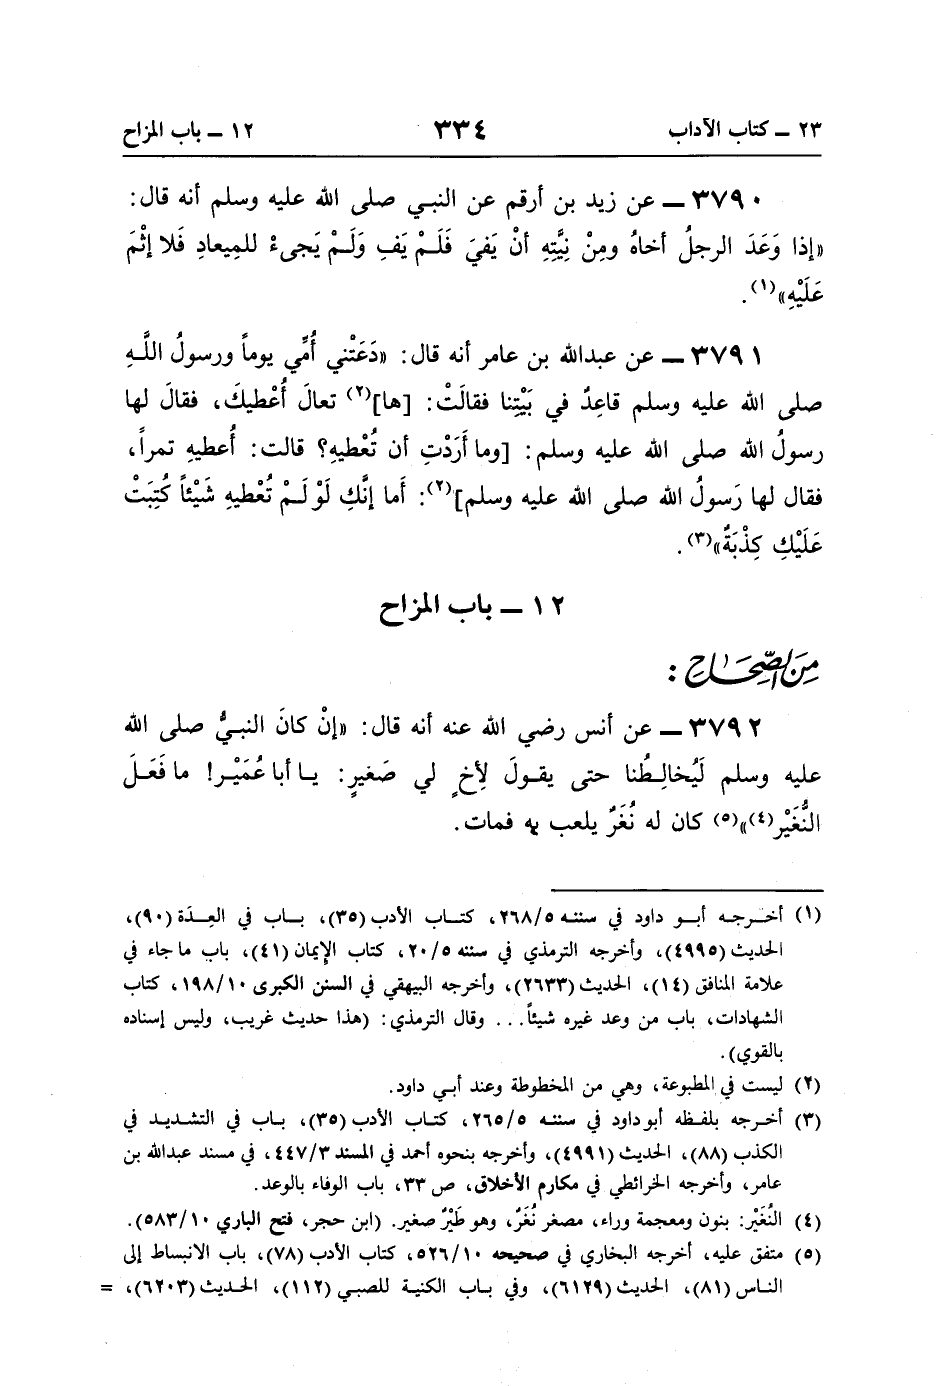 ٢٣ ــ كتاب الآداب ٣٣٤ ١٢ ــ باب المزاح
٣٧٩٠ ــ عن زيد بن أرقم عن النبي صلى الله عليه وسلم أنه قال:
«إذا وَعَدَ الرجلُ أخاهُ ومِنْ نِيَّتِهِ أنْ يَفيَ فَلَمْ يَفِ وَلَمْ يَجيءْ للمِيعادِ فَلا إثْمَ
عَلَيْهِ»(١).
٣٧٩١ ــ عن عبدالله بن عامر أنه قال: «دَعَتْني أُمِّي يوماً ورسولُ اللَّهِ
صلى الله عليه وسلم قاعِدٌ في بَيْتِنا فقالَتْ: [ها](٢) تعالَ أُعْطيكَ، فقالَ لها
رسولُ الله صلى الله عليه وسلم: [وما أَرَدْتِ أن تُعْطيهِ؟ قالت: أُعطيهِ تمراً،
فقال لها رَسولُ الله صلى الله عليه وسلم](٢): أَما إنَّكِ لَوْ لَمْ تُعْطيهِ شَيْئاً كُتِبَتْ
عَلَيْكِ كِذْبَةٌ»(٣).
١٢ ــ باب المزاح
مِنَ الصِّحَاحِ:
٣٧٩٢ ــ عن أنس رضي الله عنه أنه قال: «إنْ كانَ النبيُّ صلى الله
عليه وسلم لَيُخالِطُنا حتى يقولَ لأِخٍ لي صَغيرٍ: يا أبا عُمَيْر! ما فَعَلَ
النُّغَيْر(٤)»(٥) كان له نُغَرٌ يلعب به فمات.
(١) أخرجه أبو داود في سننه ٢٦٨/٥، كتاب الأدب (٣٥)، باب في العِدَة (٩٠)،
الحديث (٤٩٩٥)، وأخرجه الترمذي في سننه ٢٠/٥، كتاب الإيمان (٤١)، باب ما جاء في
علامة المنافق (١٤)، الحديث (٢٦٣٣)، وأخرجه البيهقي في السنن الكبرى ١٩٨/١٠، كتاب
الشهادات، باب من وعد غيره شيئاً... وقال الترمذي: (هذا حديث غريب، وليس إسناده
بالقوي).
(٢) ليست في المطبوعة، وهي من المخطوطة وعند أبي داود.
(٣) أخرجه بلفظه أبو داود في سننه ٢٦٥/٥، كتاب الأدب (٣٥)، باب في التشديد في
الكذب (٨٨)، الحديث (٤٩٩١)، وأخرجه بنحوه أحمد في المسند ٤٤٧/٣، في مسند عبدالله بن
عامر، وأخرجه الخرائطي في مكارم الأخلاق، ص ٣٣، باب الوفاء بالوعد.
(٤) النُغَيْر: بنون ومعجمة وراء، مصغر نُغَرٌ، وهو طَيْرٌ صغير. (ابن حجر، فتح الباري ٥٨٣/١٠).
(٥) متفق عليه، أخرجه البخاري في صحيحه ٥٢٦/١٠، كتاب الأدب (٧٨)، باب الانبساط إلى
الناس (٨١)، الحديث (٦١٢٩)، وفي باب الكنية للصبي (١١٢)، الحديث (٦٢٠٣)، =